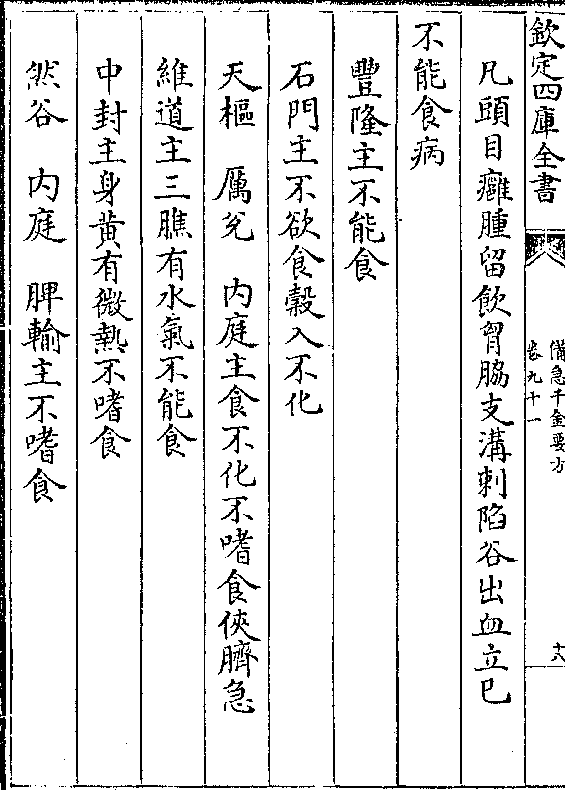 欽定四庫全書
備急千金要方
卷九十一
十六
凡頭目癰腫留飲胷脇支溝刺陷谷出血立已
不能食病
豐隆主不能食
石門主不欲食穀入不化
天樞　厲兊　內庭主食不化不嗜食俠臍急
維道主三膲有水氣不能食
中封主身黄有微熱不嗜食
然谷　内庭　脾輸主不嗜食